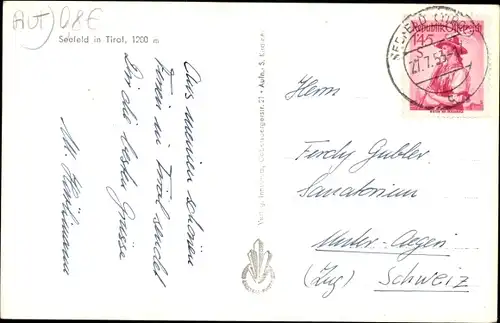 AUT) 08E
Seefeld in Tirol, 1200 m
Aus meinen schönen
Ferien in Tirol sendet
Dir die besten Grüsse
M.
Verlag
Aufn. S.
SEEFELD (TIROL)
27.7.53
Republik Österreich
145
Herrn
Ferdy Gubler
Sanatorium
Unter-Aegeri
(Zug) Schweiz